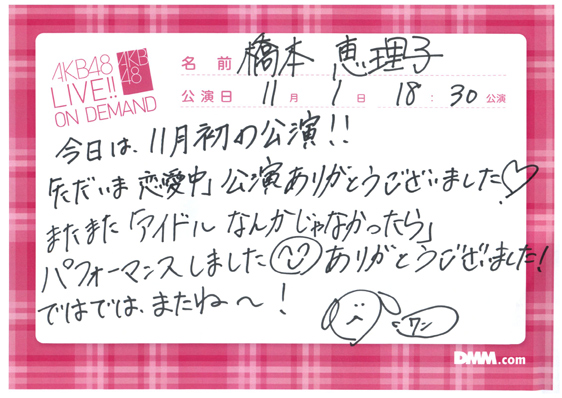 AKB48
LIVE!!
ON DEMAND
AKB
48
名前 橋本 恵理子
公演日 11月 1日 18:30公演
今日は、11月初の公演!!
「ただいま 恋愛中」公演ありがとうございました♡
またまた「アイドルなんかじゃなかったら」
パフォーマンスしました ありがとうございました!
ではでは、またね〜!
ワン
DMM.com